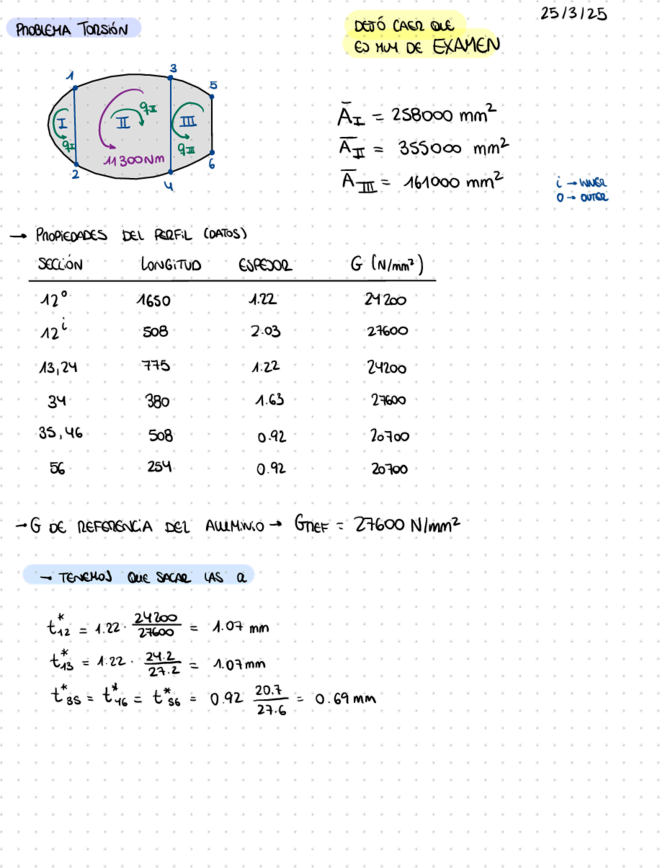 25/3/25
PROBLEMA TORSIÓN
DEJÓ CAER QUE
ES MUY DE EXAMEN
1 3 5
I qI II qII III qIII
11300Nm
2 4 6
ĀI = 258000 mm²
ĀII = 355000 mm²
ĀIII = 161000 mm²
i → INNER
O → OUTER
→ PROPIEDADES DEL PERFIL (DATOS)
SECCIÓN LONGITUD ESPESOR G (N/mm²)
12° 1650 1.22 24200
12ⁱ 508 2.03 27600
13,24 775 1.22 24200
34 380 1.63 27600
35,46 508 0.92 20700
56 254 0.92 20700
→ G DE REFERENCIA DEL ALUMINIO → GREF = 27600 N/mm²
→ TENEMOS QUE SACAR LAS a
t*12 = 1.22 · 24200/27600 = 1.07 mm
t*13 = 1.22 · 24.2/27.2 = 1.07mm
t*35 = t*46 = t*56 = 0.92 20.7/27.6 = 0.69 mm